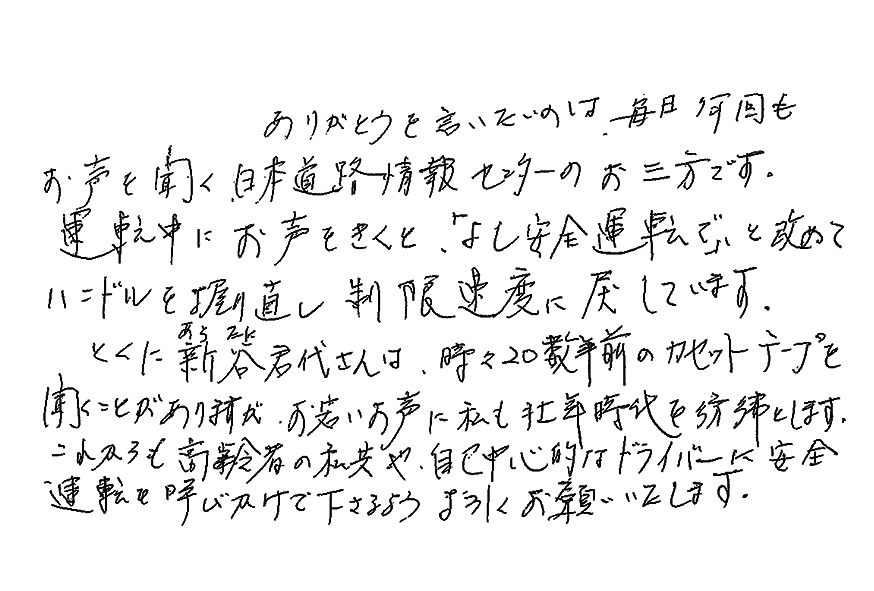 ありがとうを言いたいのは、毎日何回も
お声を聞く日本道路情報センターのお三方です。
運転中にお声をきくと、「よし安全運転で」と改めて
ハンドルを握り直し制限速度に戻しています。
とくに新谷君代さんは、時々20数年前のカセットテープを
あらたに
聞くことがありますが、お若いお声に私も壮年時代を彷彿とします。
これからも高齢者の私共や、自己中心的なドライバーに安全
運転を呼びかけて下さるようよろしくお願いいたします。